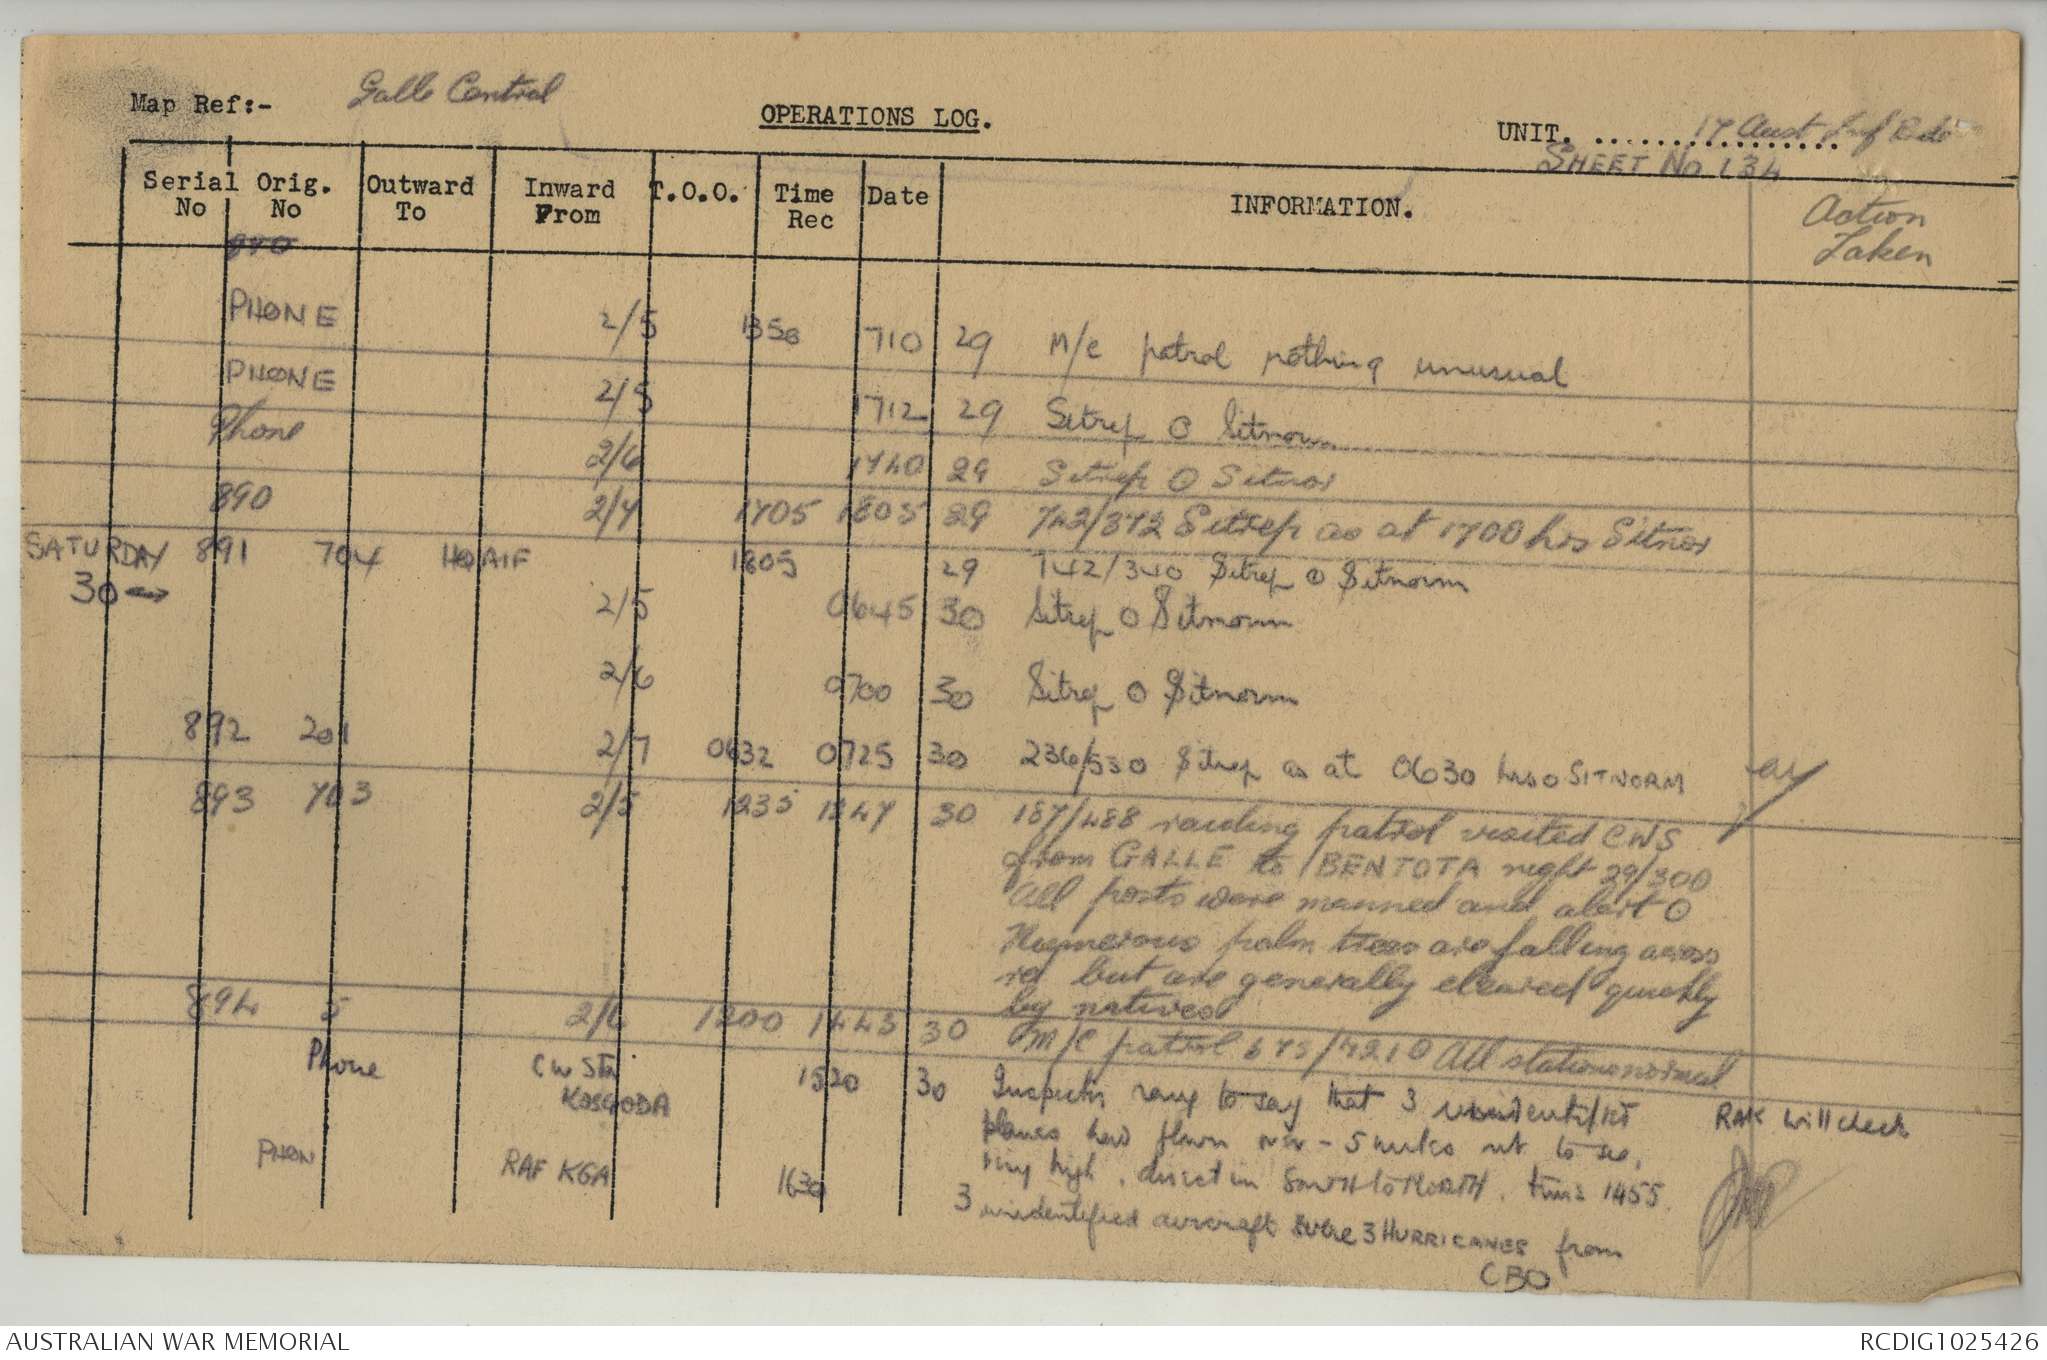 Map Ref:- Galle Central
OPERATIONS LOG.
UNIT. ................ 17 Aust Inf Bde
SHEET No 134
Serial No Orig. No Outward To Inward From T.O.O. Time Rec Date INFORMATION. Action Taken
890
PHONE 2/5 1350 1710 29 M/c patrol nothing unusual
PHONE 2/5 1712 29 Sitrep O Sitnorm
Phone 2/6 1740 29 Sitrep O Sitnor
890 2/7 1705 1805 29 742/372 Sitrep as at 1700 hrs Sitnor
SATURDAY 891 704 HQ AIF 1805 29 742/340 Sitrep O Sitnorm
30 2/5 0645 30 Sitrep O Sitnorm
2/6 0700 30 Sitrep O Sitnorm
892 201 2/7 0632 0725 30 236/530 Sitrep as at 0630 hrs O SITNORM
893 703 2/5 1235 1247 30 187/488 patrol visited CWS
from GALLE to BENTOTA night 29/30 O
All posts were manned and alert O
Numerous palm trees are falling across
rd but are generally cleared quickly
by natives
894 5 2/6 1200 1443 30 M/C patrol 675/721 O All stations normal
Phone CW Stn KOSGODA 1520 30 Inspector rang to say that 3 unidentified
planes had flown over - 5 minutes out to sea,
very high, direction SOUTH to NORTH. time 1455.
RAF will check
PHON RAF KGA 1630 3 unidentified aircraft were 3 HURRICANES from
CBO
AUSTRALIAN WAR MEMORIAL
RCDIG1025426